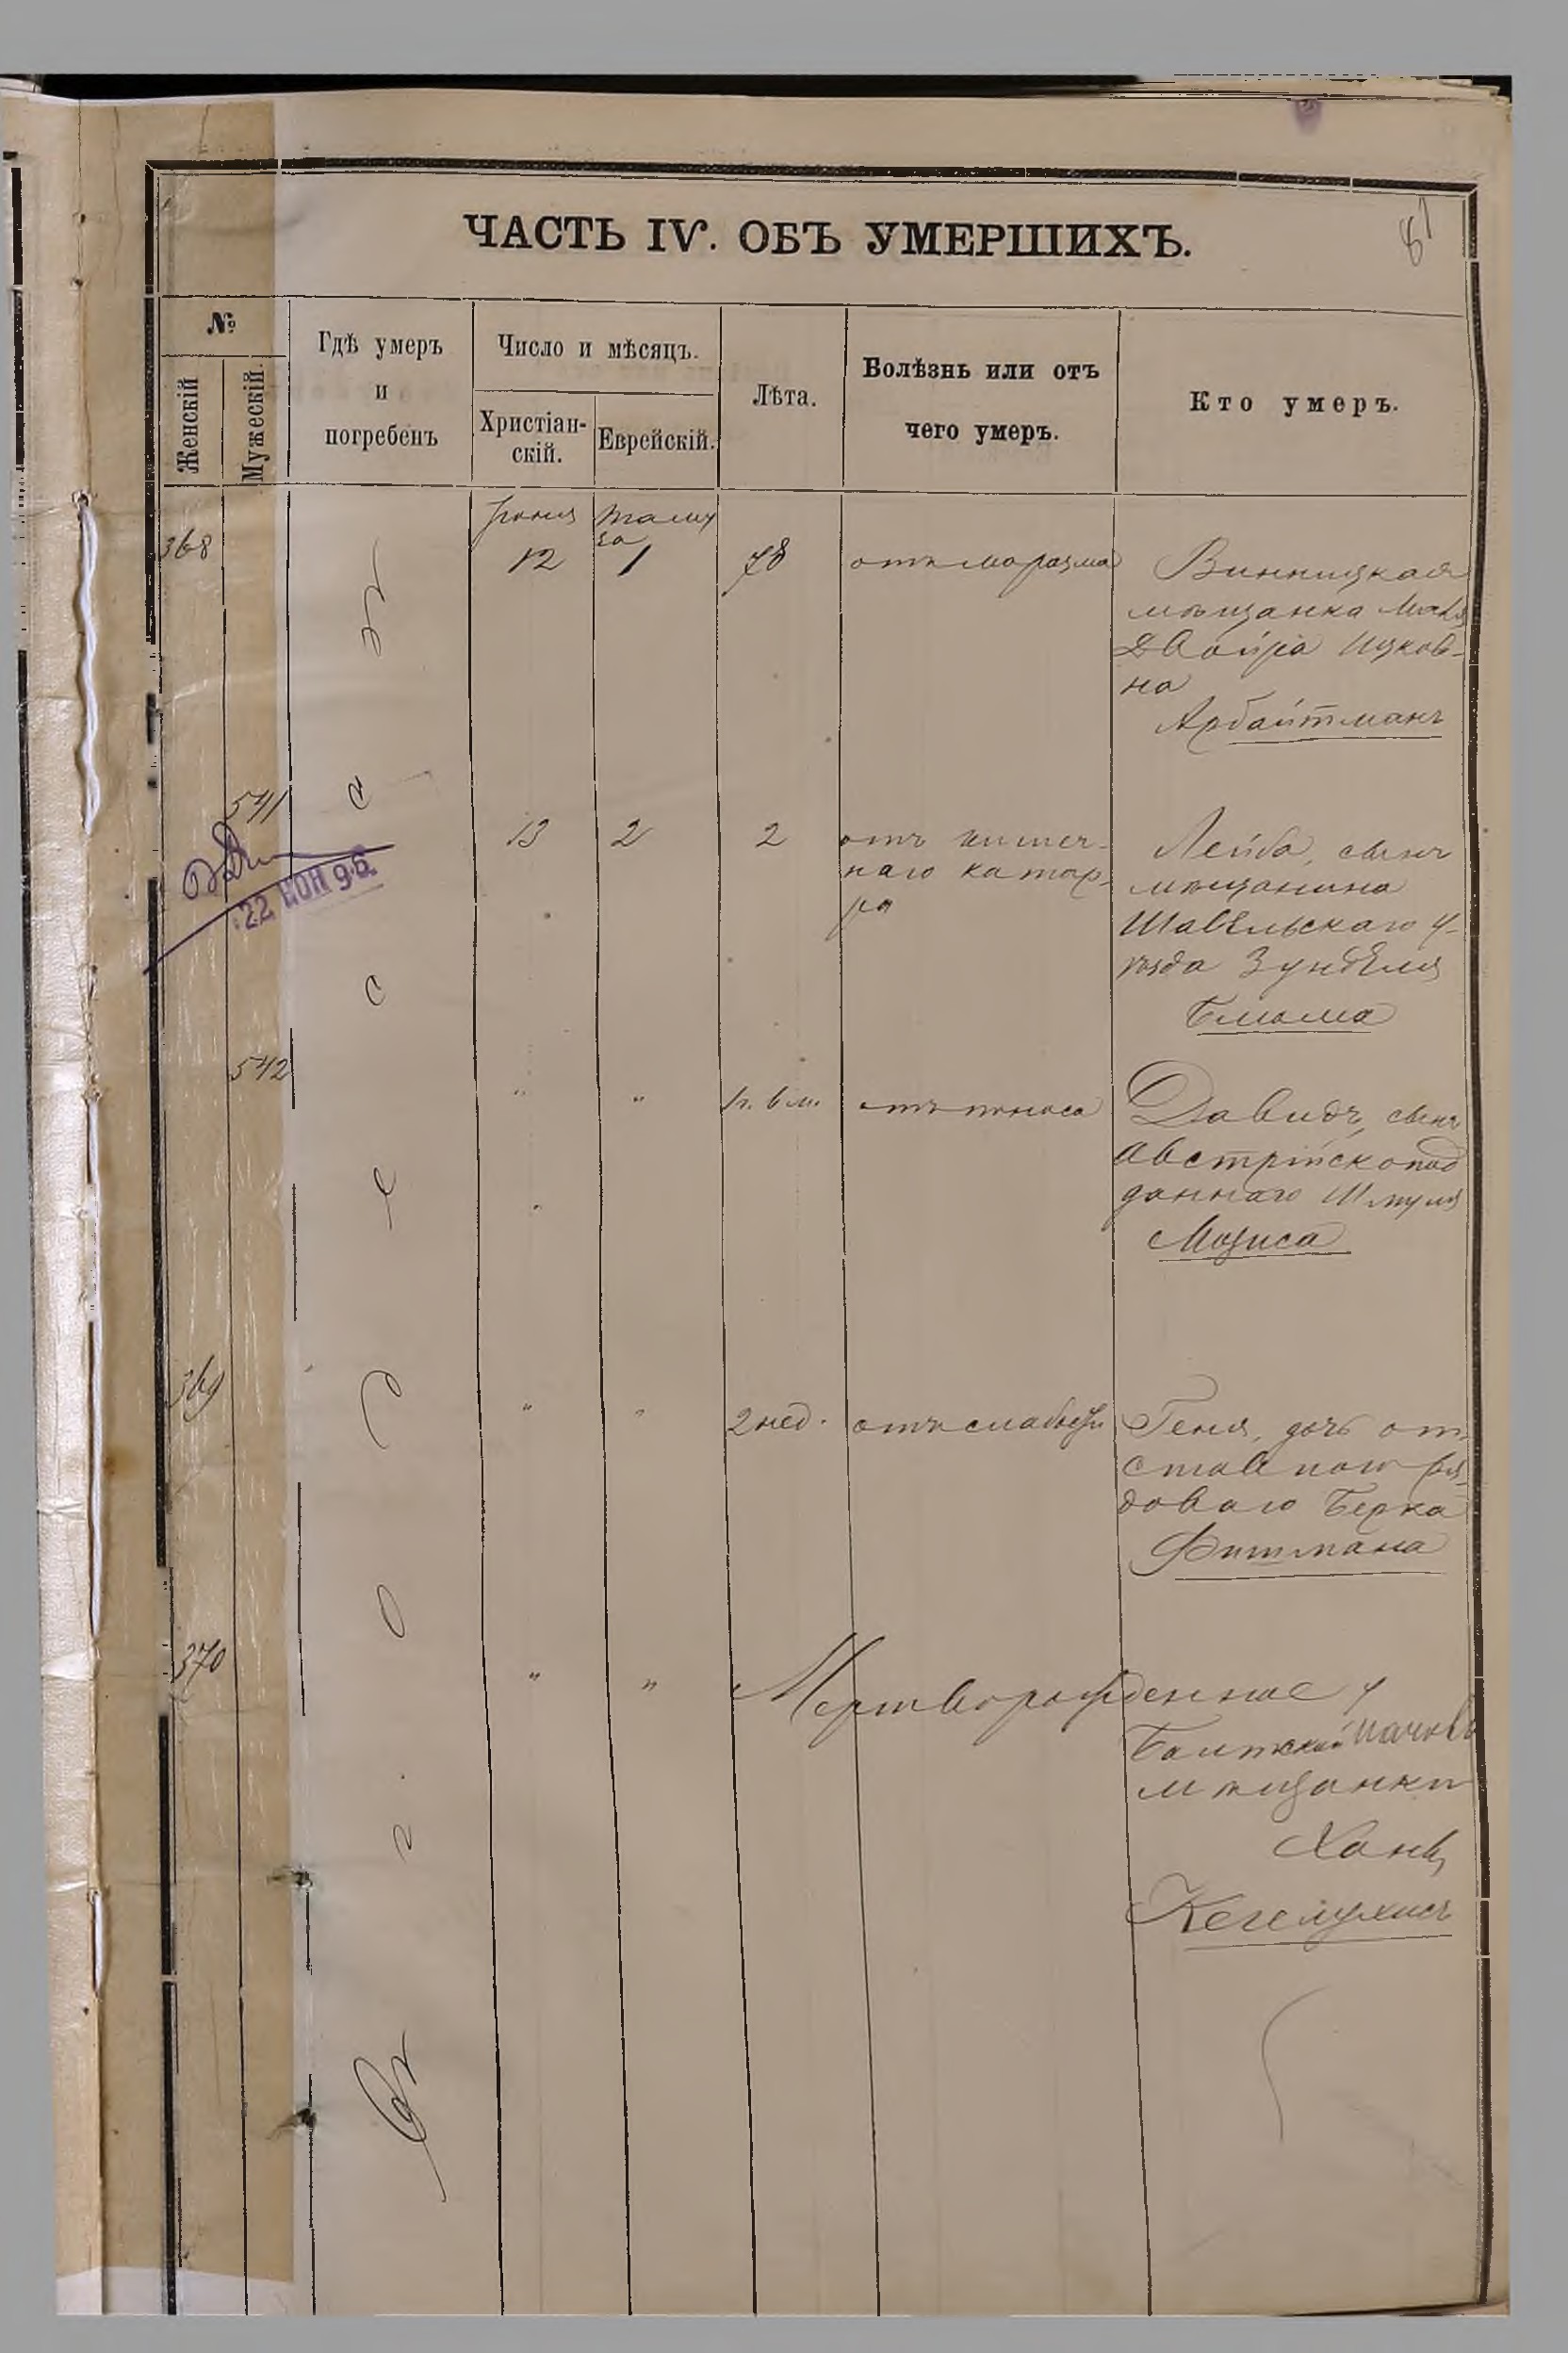 81
ЧАСТЬ IV. ОБЪ УМЕРШИХЪ.
№
Женскій
Мужескій.
Гдѣ умеръ
и
погребенъ
Число и мѣсяцъ.
Христіан-
скій.
Еврейскій.
Лѣта.
Болѣзнь или отъ
чего умеръ.
Кто умеръ.
Въ г. Одессѣ
368
Іюня
12
Таму
за
1
78
отъ маразма
Винницкая
мѣщанка
Двойра Ицков-
на
Арбайтманъ
541
22 НОЯ 96
13
2
2
отъ кишеч-
наго катар-
ра
Лейба, сынъ
мѣщанина
Шавельскаго у-
ѣзда Зунделя
Блюма
542
"
"
1 г. 6 м.
отъ поноса
Давидъ, сынъ
австрійскопод
даннаго Шмуля
Мозиса
369
"
"
2 нед.
отъ слабости
Геня, дочь от-
ставного ря-
дового Берка
Фитмана
370
"
"
Мертворожденное у
Балтской
мѣщанки
Ханы